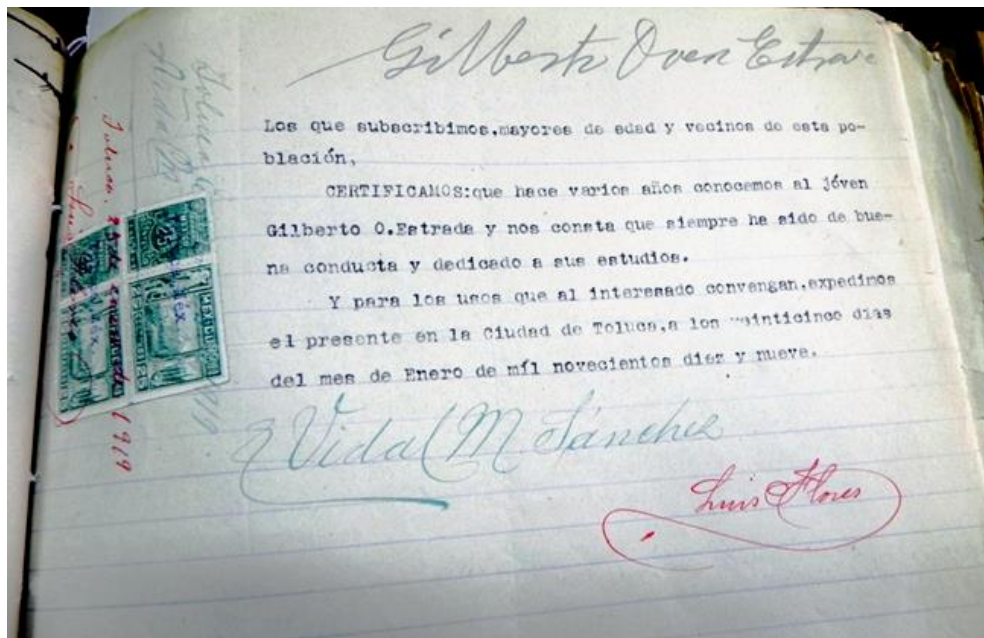 Gilberto Owen Estrada
Los que subscribimos,mayores de edad y vecinos de esta po-
blación,
CERTIFICAMOS:que hace varios años conocemos al jóven
Gilberto O.Estrada y nos consta que siempre ha sido de bue-
na conducta y dedicado a sus estudios.
Y para los usos que al interesado convengan,expedimos
el presente en la Ciudad de Toluca,a los veinticinco días
del mes de Enero de mil novecientos diez y nueve.
Vidal M. Sánchez
Luis Flores
Toluca, 25 de enero de 1919
Luis Flores
Toluca
Vidal
MEXICO
25